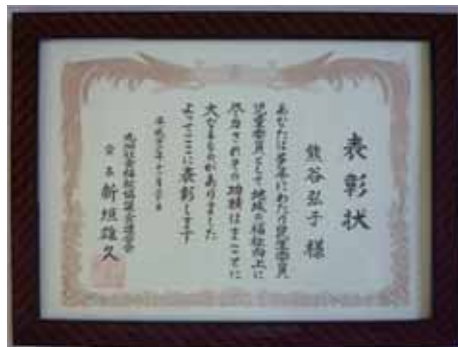 表彰状
熊谷弘子 様
あなたは多年にわたり民生委員
児童委員として地域の福祉向上に
尽力されその功績はまことに
大なるものがありました
よってここに表彰します
平成
社会福祉協議会連合会
会長 新垣雄久